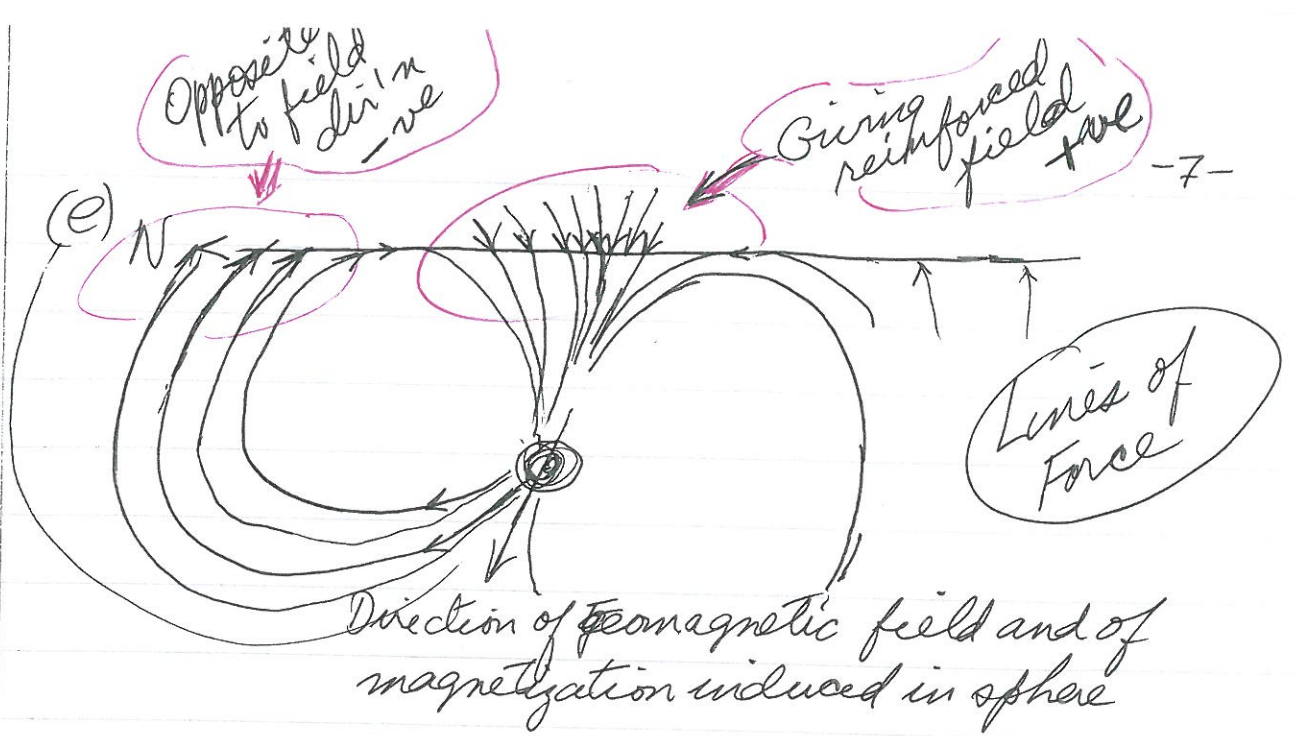 Opposite
to field
dir'n
-ve
Giving
reinforced
field
+ve
-7-
(e)
N
Lines of
Force
Direction of geomagnetic field and of
magnetization induced in sphere